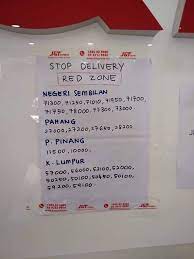 J&T EXPRESS
STOP DELIVERY
RED ZONE
NEGERI SEMBILAN
71300, 71250, 71010, 71950, 71700,
71750, 78000, 77300, 73000
PAHANG
27000, 27200, 27650, 28200
P. PINANG
11500, 10000.
K-LUMPUR
57000, 56000, 53100, 52000,
50250, 50150, 50450, 50100,
59200, 59100